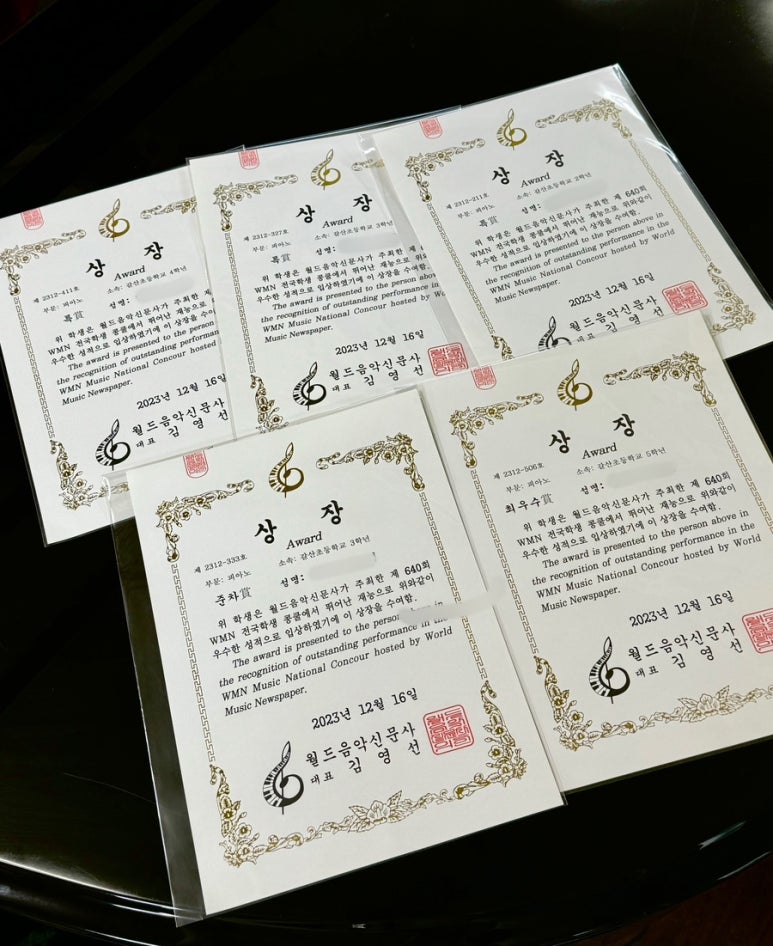 상 장
Award
제 2312-411호
부문: 피아노 소속: 갈산초등학교 4학년
특賞 성명:
위 학생은 월드음악신문사가 주최한 제
WMN 전국학생 콩쿨에서 뛰어난 재능으로
우수한 성적으로 입상하였기에 이 상장을 수여
The award is presented to the person
the recognition of outstanding
WMN Music National Concour hosted
Music Newspaper.
2023년 12월 16일
월드음악신문사
대표 김 영 선
상 장
Award
제 2312-327호
부문: 피아노 소속: 갈산초등학교 3학년
특賞 성명:
위 학생은 월드음악신문사가 주최한 제 640회
WMN 전국학생 콩쿨에서 뛰어난 재능으로 위와같이
우수한 성적으로 입상하였기에 이 상장을 수여함.
The award is presented to the person above
the recognition of outstanding performance in the
WMN Music National Concour hosted by
Music Newspaper.
2023년 12월 16일
월드음악신문사
대표 김 영 선
상 장
Award
제 2312-211호
부문: 피아노 소속: 갈산초등학교 2학년
특賞 성명:
위 학생은 월드음악신문사가 주최한 제 640회
WMN 전국학생 콩쿨에서 뛰어난 재능으로 위와같이
우수한 성적으로 입상하였기에 이 상장을 수여함.
The award is presented to the person above in
the recognition of outstanding performance in the
WMN Music National Concour hosted by World
Music Newspaper.
2023년 12월 16일
월드음악신문사
상 장
Award
제 2312-333호
부문: 피아노 소속: 갈산초등학교 3학년
준차賞 성명:
위 학생은 월드음악신문사가 주최한 제 640회
WMN 전국학생 콩쿨에서 뛰어난 재능으로 위와같이
우수한 성적으로 입상하였기에 이 상장을 수여함.
The award is presented to the person above in
the recognition of outstanding performance in the
WMN Music National Concour hosted by World
Music Newspaper.
2023년 12월 16일
월드음악신문사
대표 김 영 선
상 장
Award
제 2312-506호
부문: 피아노 소속: 갈산초등학교 5학년
최우수賞 성명:
위 학생은 월드음악신문사가 주최한 제 640회
WMN 전국학생 콩쿨에서 뛰어난 재능으로 위와같이
우수한 성적으로 입상하였기에 이 상장을 수여함.
The award is presented to the person above in
the recognition of outstanding performance in the
WMN Music National Concour hosted by World
Music Newspaper.
2023년 12월 16일
월드음악신문사
대표 김 영 선